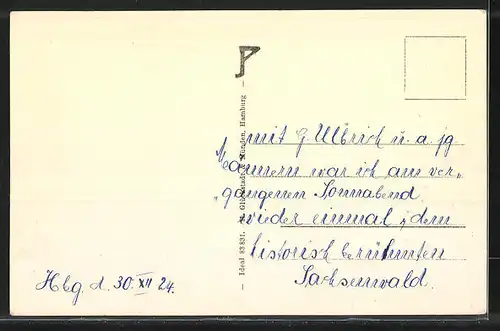 mit G. Ulbrich u. a. jg.
Männern war ich am ver„
„gangenen Sonnabend
wieder einmal i. dem
historisch berühmten
Sachsenwald.
Hbg. d. 30. XII 24.
Ideal 83831. M. Glückstadt & Münden, Hamburg